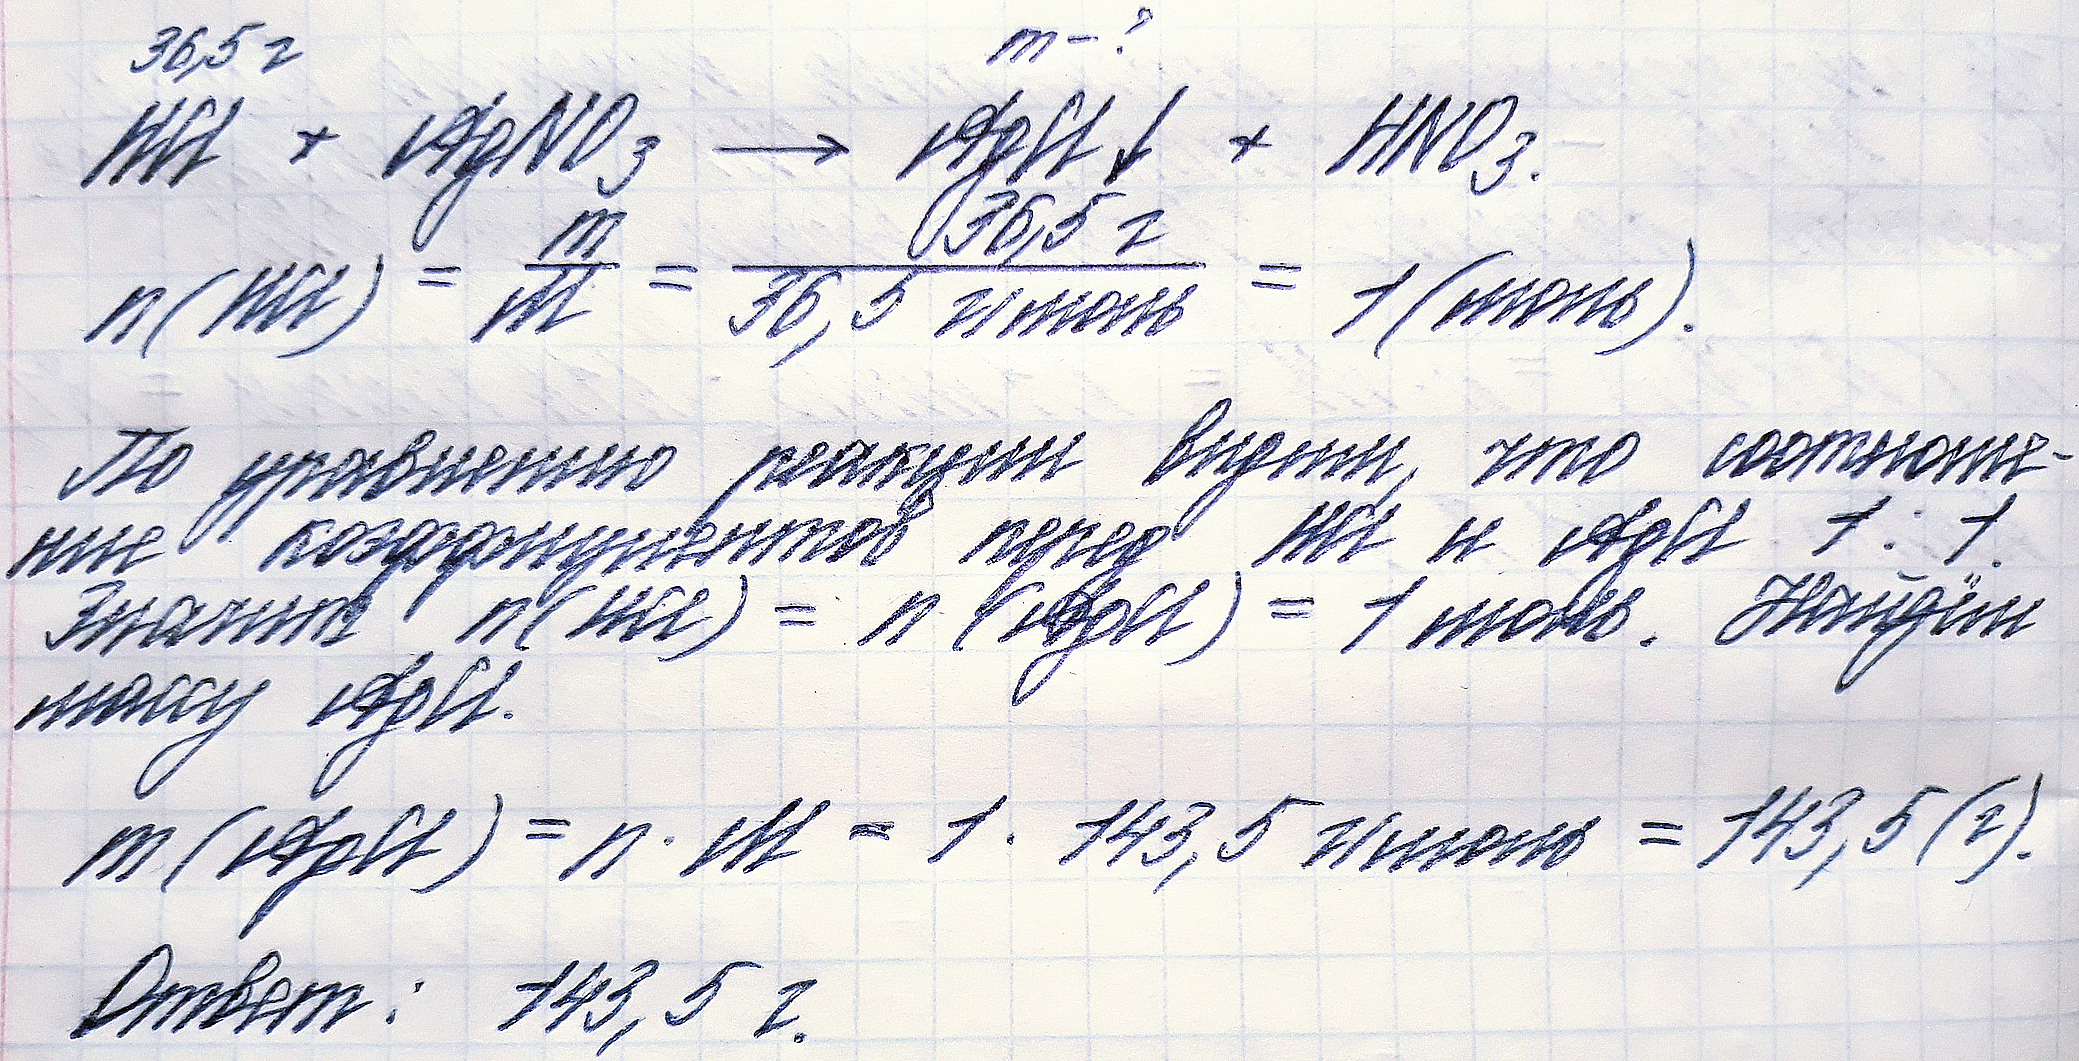 36,5 г m - ?
HCl + AgNO₃ → AgCl↓ + HNO₃.
n(HCl) = m/M = 36,5 г/36,5 г/моль = 1 (моль).
По уравнению реакции видим, что соотноше-
ние коэффициентов перед HCl и AgCl 1 : 1.
Значит n(HCl) = n (AgCl) = 1 моль. Найдём
массу AgCl.
m(AgCl) = n · M = 1 · 143,5 г/моль = 143,5 (г).
Ответ: 143,5 г.